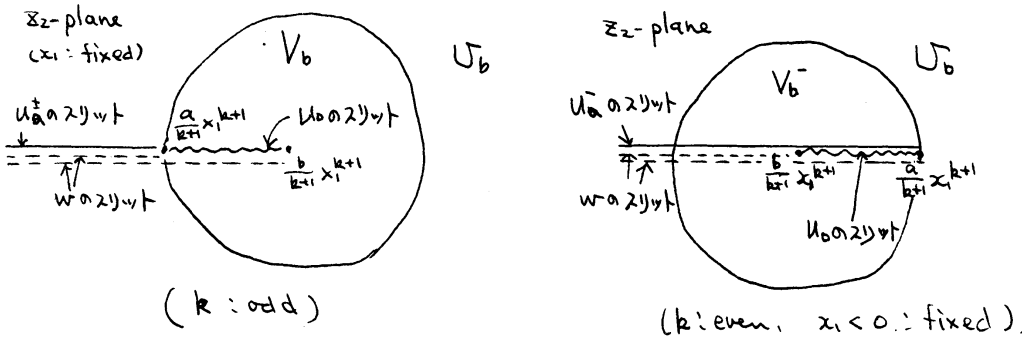 z₂-plane
(x₁ : fixed)
V_b
U_b
u_a^± のスリット
a/(k+1) x₁^{k+1}
u₀のスリット
b/(k+1) x₁^{k+1}
wのスリット
(k : odd)
z₂-plane
V_b^-
U_b
u_a^- のスリット
b/(k+1) x₁^{k+1}
a/(k+1) x₁^{k+1}
wのスリット
u₀のスリット
(k : even, x₁ < 0 : fixed).